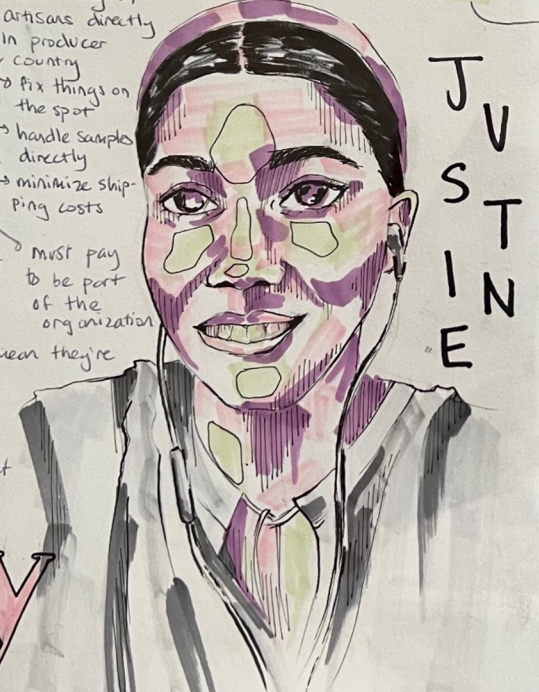 artisans directly
in producer
country
→ fix things on
the spot
→ handle samples
directly
→ minimize ship-
ping costs
must pay
to be part
of the
organization
they're
JUSTINE